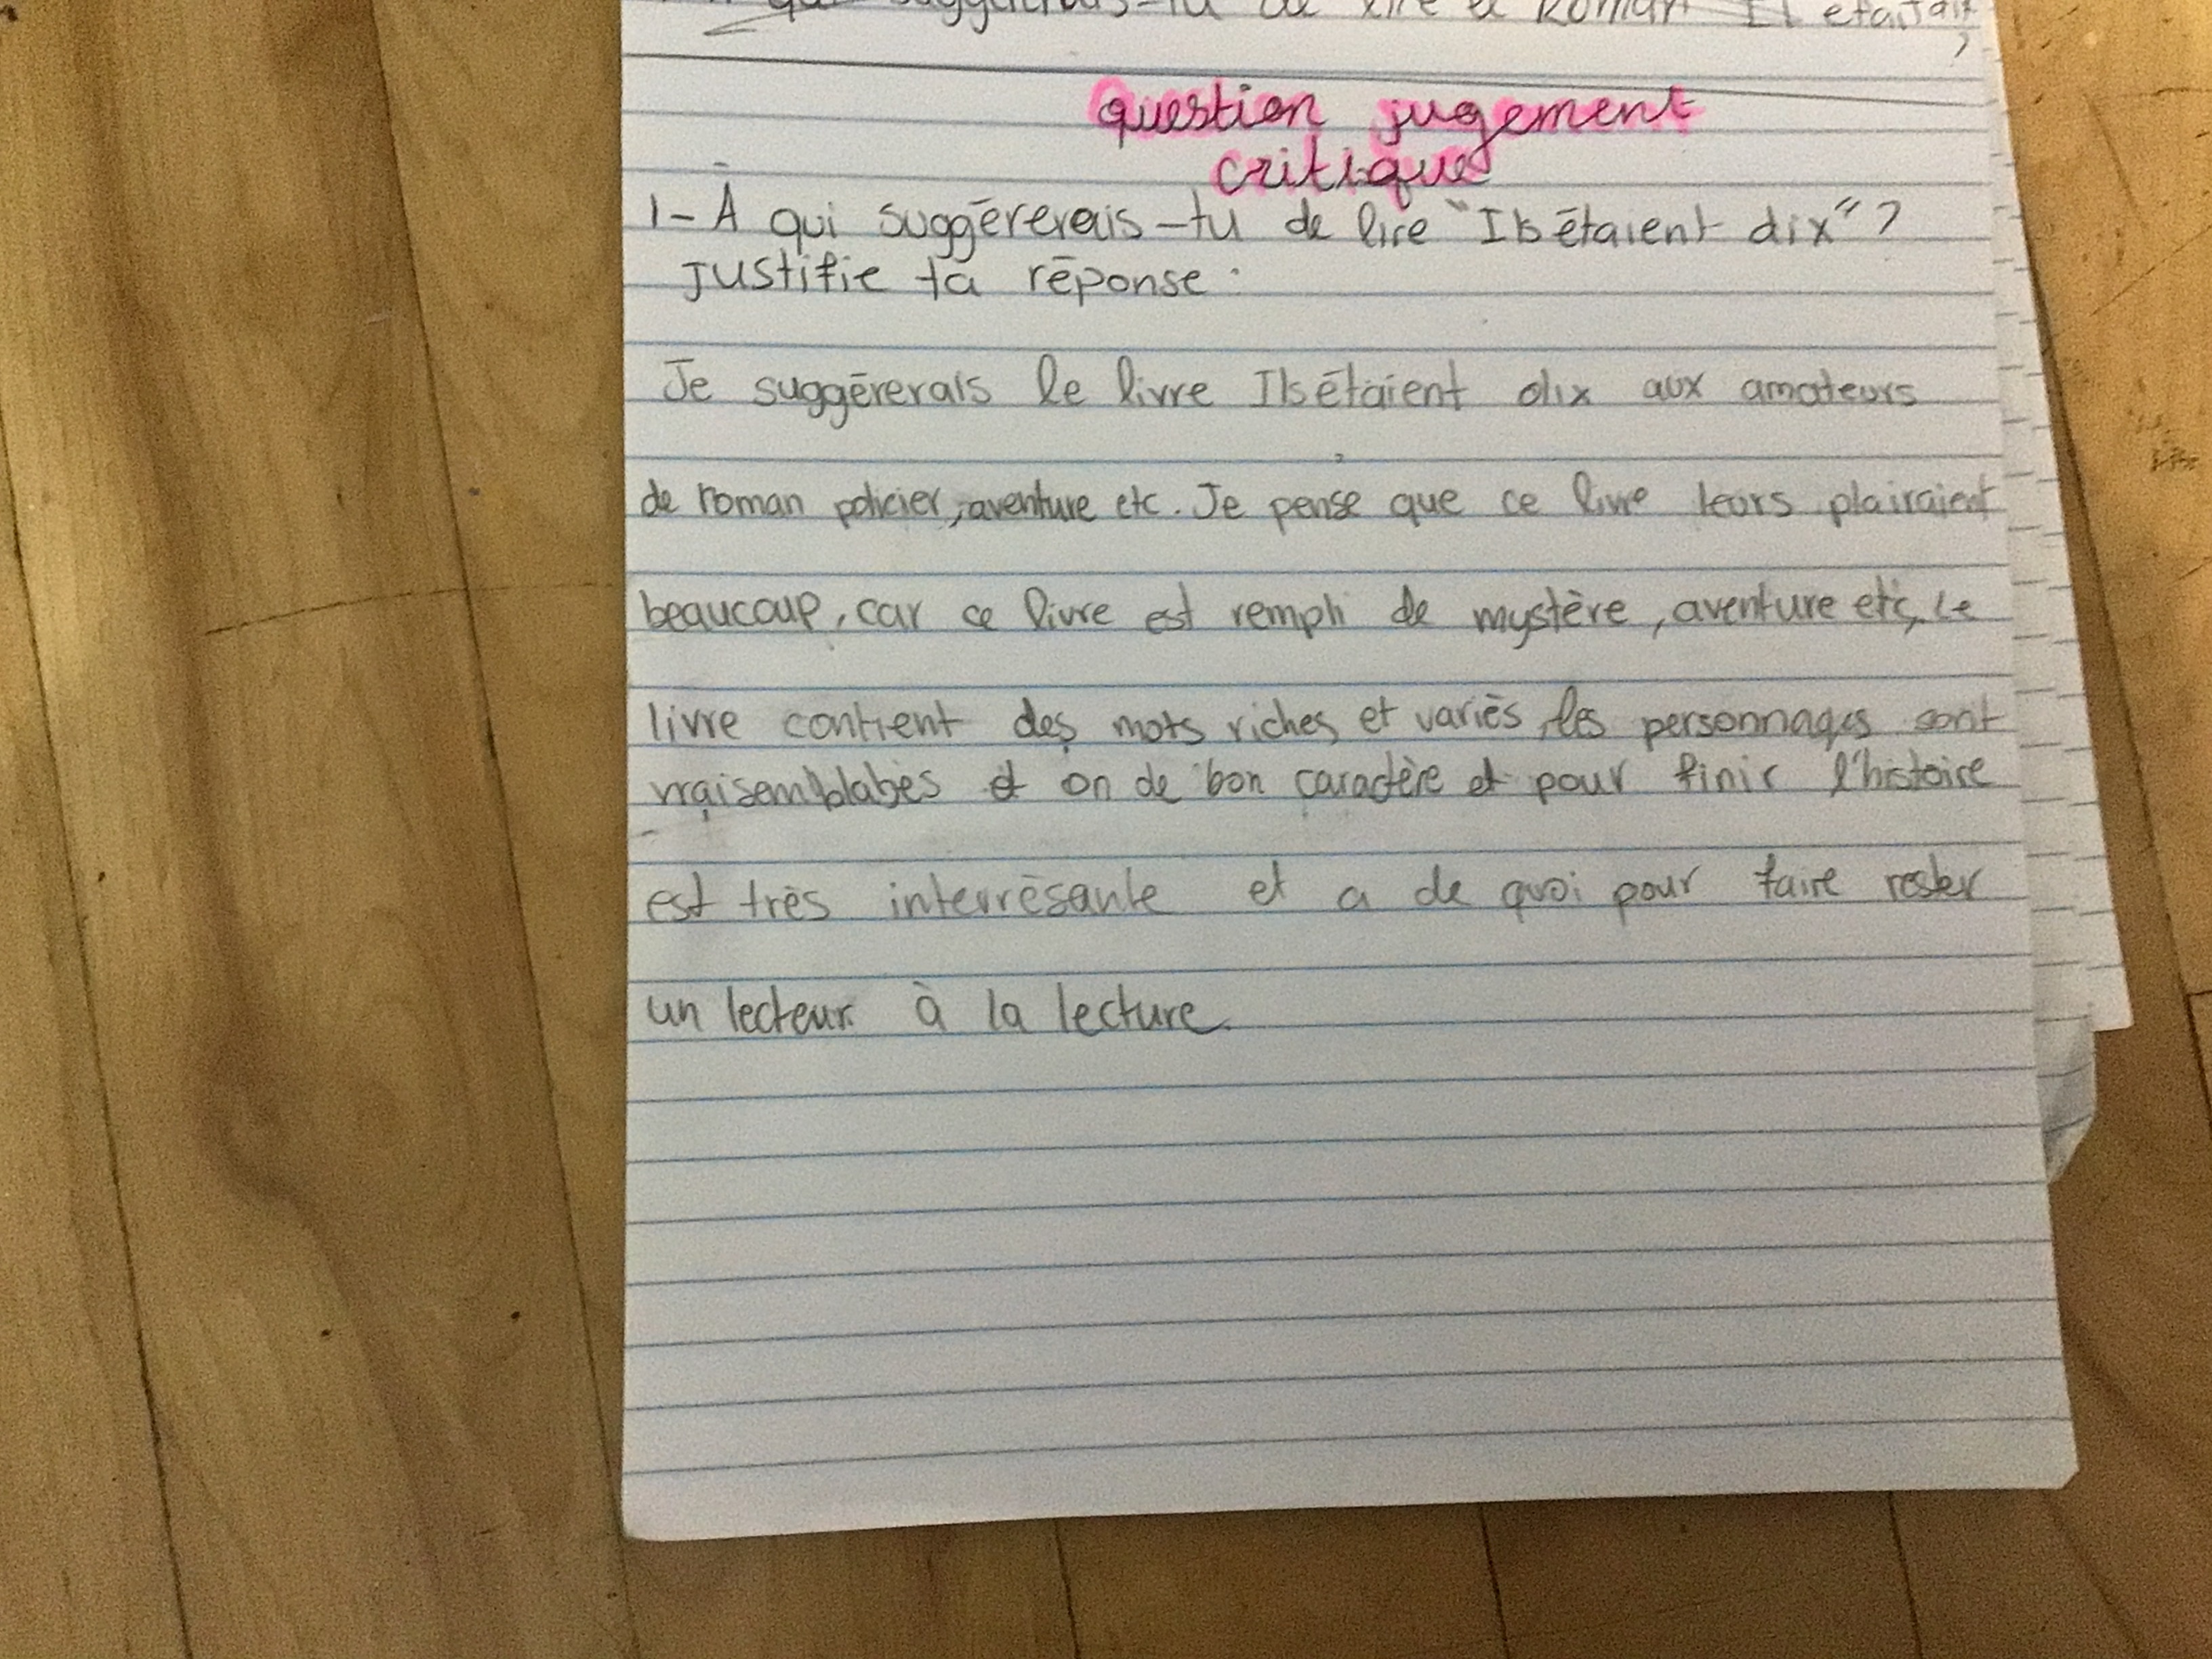 suggérerais-tu de lire le Roman Il étaitait
?
question jugement
critique
1- À qui suggérerais-tu de lire "Ils étaient dix"?
Justifie ta réponse :
Je suggérerais le livre Ils étaient dix aux amateurs
de roman policier, aventure etc. Je pense que ce livre leurs plairaient
beaucoup, car ce livre est rempli de mystère, aventure etc, Le
livre contient des mots riches et variés, les personnages sont
vraisemblables et on de bon caractère et pour finir l'histoire
est très interrésante et a de quoi pour faire rester
un lecteur à la lecture.